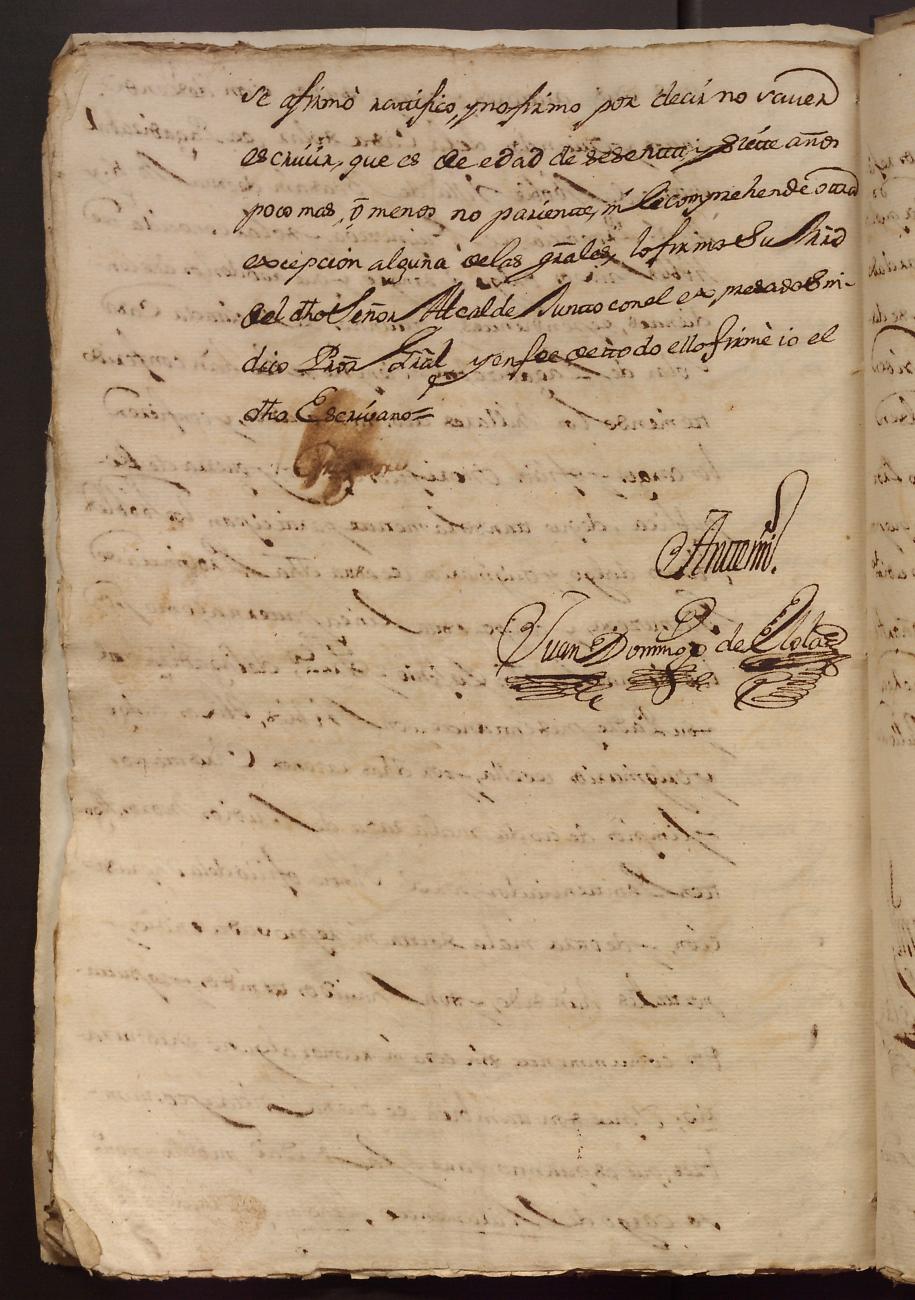 se afirmò ratifico, y no firmo por decir no sauer
escriuir, que es de edad de sesenta, y siete años
poco mas, ò menos no pariente, ni le comprehende otra
excepcion alguna de las grâles, lo firmo Su Mrd
del dho Señor Alcalde Junto con el expresado Sin-
dico Pror Gràl, y en fee de todo ello firmè io el
dho Escriuano=
Antemi.
Juan Domingo de